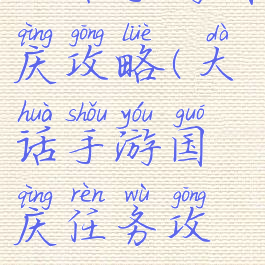 qìng gōng lüè dà
庆攻略(大
huà shǒu yóu guó
话手游国
qìng rèn wù gōng
庆任务攻